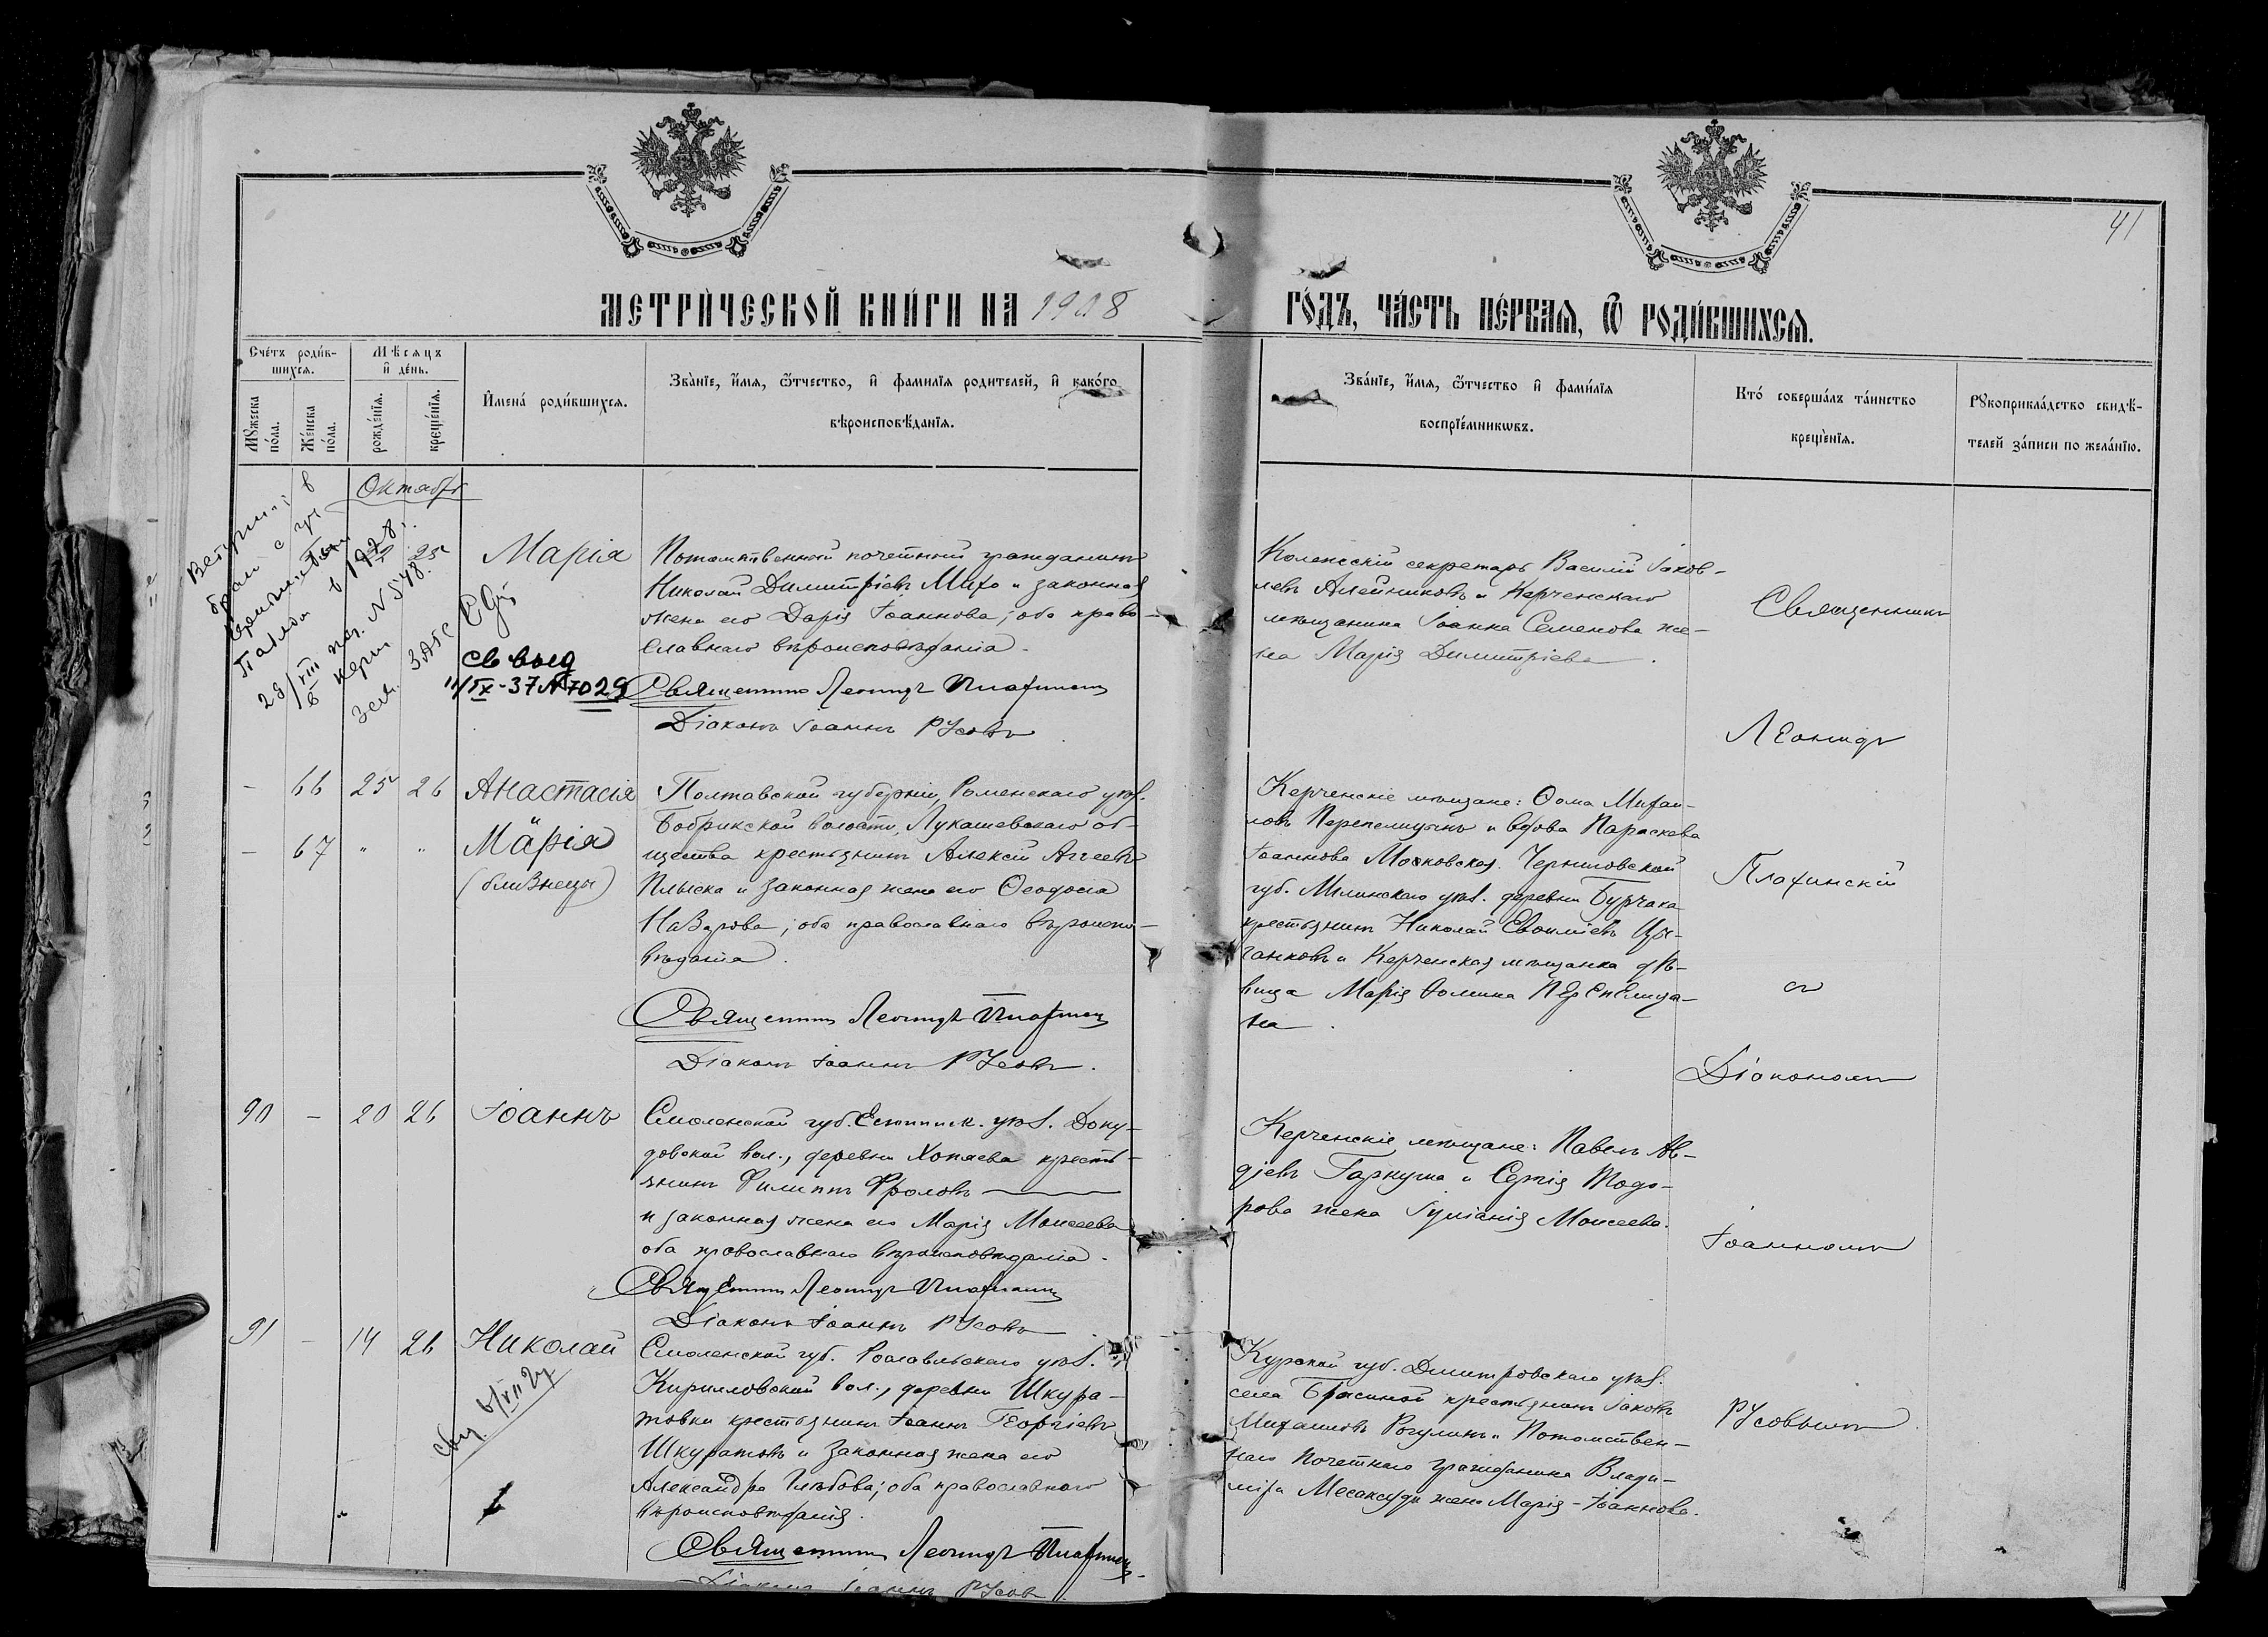 41
МЕТРИ́ЧЕСКОЙ КНИ́ГИ НА 1908
ГО́ДЪ, ЧА́СТЬ ПЕ́РВАѦ, Ѿ РОДИ́ВШИХСѦ.
Сче́тъ роди́в-
шихсѧ.
Мѣсѧцъ
и҆ де́нь.
Мꙋжеска
по́ла.
Же́нска
по́ла.
рожде́нїѧ.
креще́нїѧ.
И҆мена̀ роди́вшихсѧ.
Зва́нїе, и҆́мѧ, ѻ҆́тчество, и҆ фамилїѧ родителей, и҆ како́го
вѣроисповѣ́данїѧ.
Зва́нїе, и҆́мѧ, ѻ҆́тчество и҆ фами́лїѧ
воспрїе́мникѡвъ.
Кто́ соверша́лъ та́инство
креще́нїѧ.
Рꙋкоприкла́дство свидѣ́-
телей за́писи по жела́нїю.
Октябрь
брак с гр.
в 1928 г.
№ 548.
ЗАГС
25
Марія
св выд
11/IX-37 № 7029
Потомственный почетный гражданинъ
Николай Димитріевъ Михо и законная
жена его Дарія Іоаннова; оба право-
славнаго вѣроисповѣданія.
Священникъ Леонидъ
Діаконъ Іоаннъ Русовъ
Коллежскій секретарь Василій Іаков-
левъ Алейниковъ и Керченскаго
мѣщанина Іоанна Семенова же-
на Марія Димитріева.
Священникъ
Леонидъ
- 66 25 26 Анастасія
- 67 " " Марія
(близнецы)
Полтавской губерніи, Роменскаго уѣз.
Бобрикской волости, Лукашевскаго об-
щества крестьянинъ Алексій Аггеевъ
Плыска и законная жена его Ѳеодосія
Назарова; оба православнаго вѣроиспо-
вѣданія.
Священникъ Леонидъ
Діаконъ Іоаннъ Русовъ.
Керченскіе мѣщане: Ѳома Михаи-
ловъ Перепелицынъ и вдова Параскева
Іоаннова Московская. Черниговской
губ. Мглинскаго уѣз. деревни Бурчака
крестьянинъ Николай Евѳиміевъ Цы-
ганковъ и Керченская мѣщанка дѣ-
вица Марія Ѳомина Перепелицы-
на.
съ
Діакономъ
90 - 20 26 Іоаннъ
Смоленской губ. уѣз. Доку-
довской вол., деревни Хопяева кресть-
янинъ Филиппъ Фроловъ
и законная жена его Марія Моисеева
оба православнаго вѣроисповѣданія.
Священникъ Леонидъ
Діаконъ Іоаннъ Русовъ
Керченскіе мѣщане: Павелъ Ав-
діевъ Гаркуша и Сергія Тодо-
рова жена Іуліанія Моисеева.
Іоанномъ
91 - 14 26 Николай
Смоленской губ. Рославльскаго уѣз.
Кирилловской вол., деревни Шкура-
товки крестьянинъ Іоаннъ Георгіевъ
Шкуратовъ и законная жена его
Александра Глѣбова; оба православнаго
вѣроисповѣданія.
Священникъ Леонидъ
Діаконъ Іоаннъ Русов
Курской губ. Дмитровскаго уѣз.
крестьянинъ Іаковъ
Михаиловъ Рогулинъ и Потомствен-
наго почетнаго гражданина Влади-
міра Месаксуди жена Марія Іоаннова.
Русовымъ